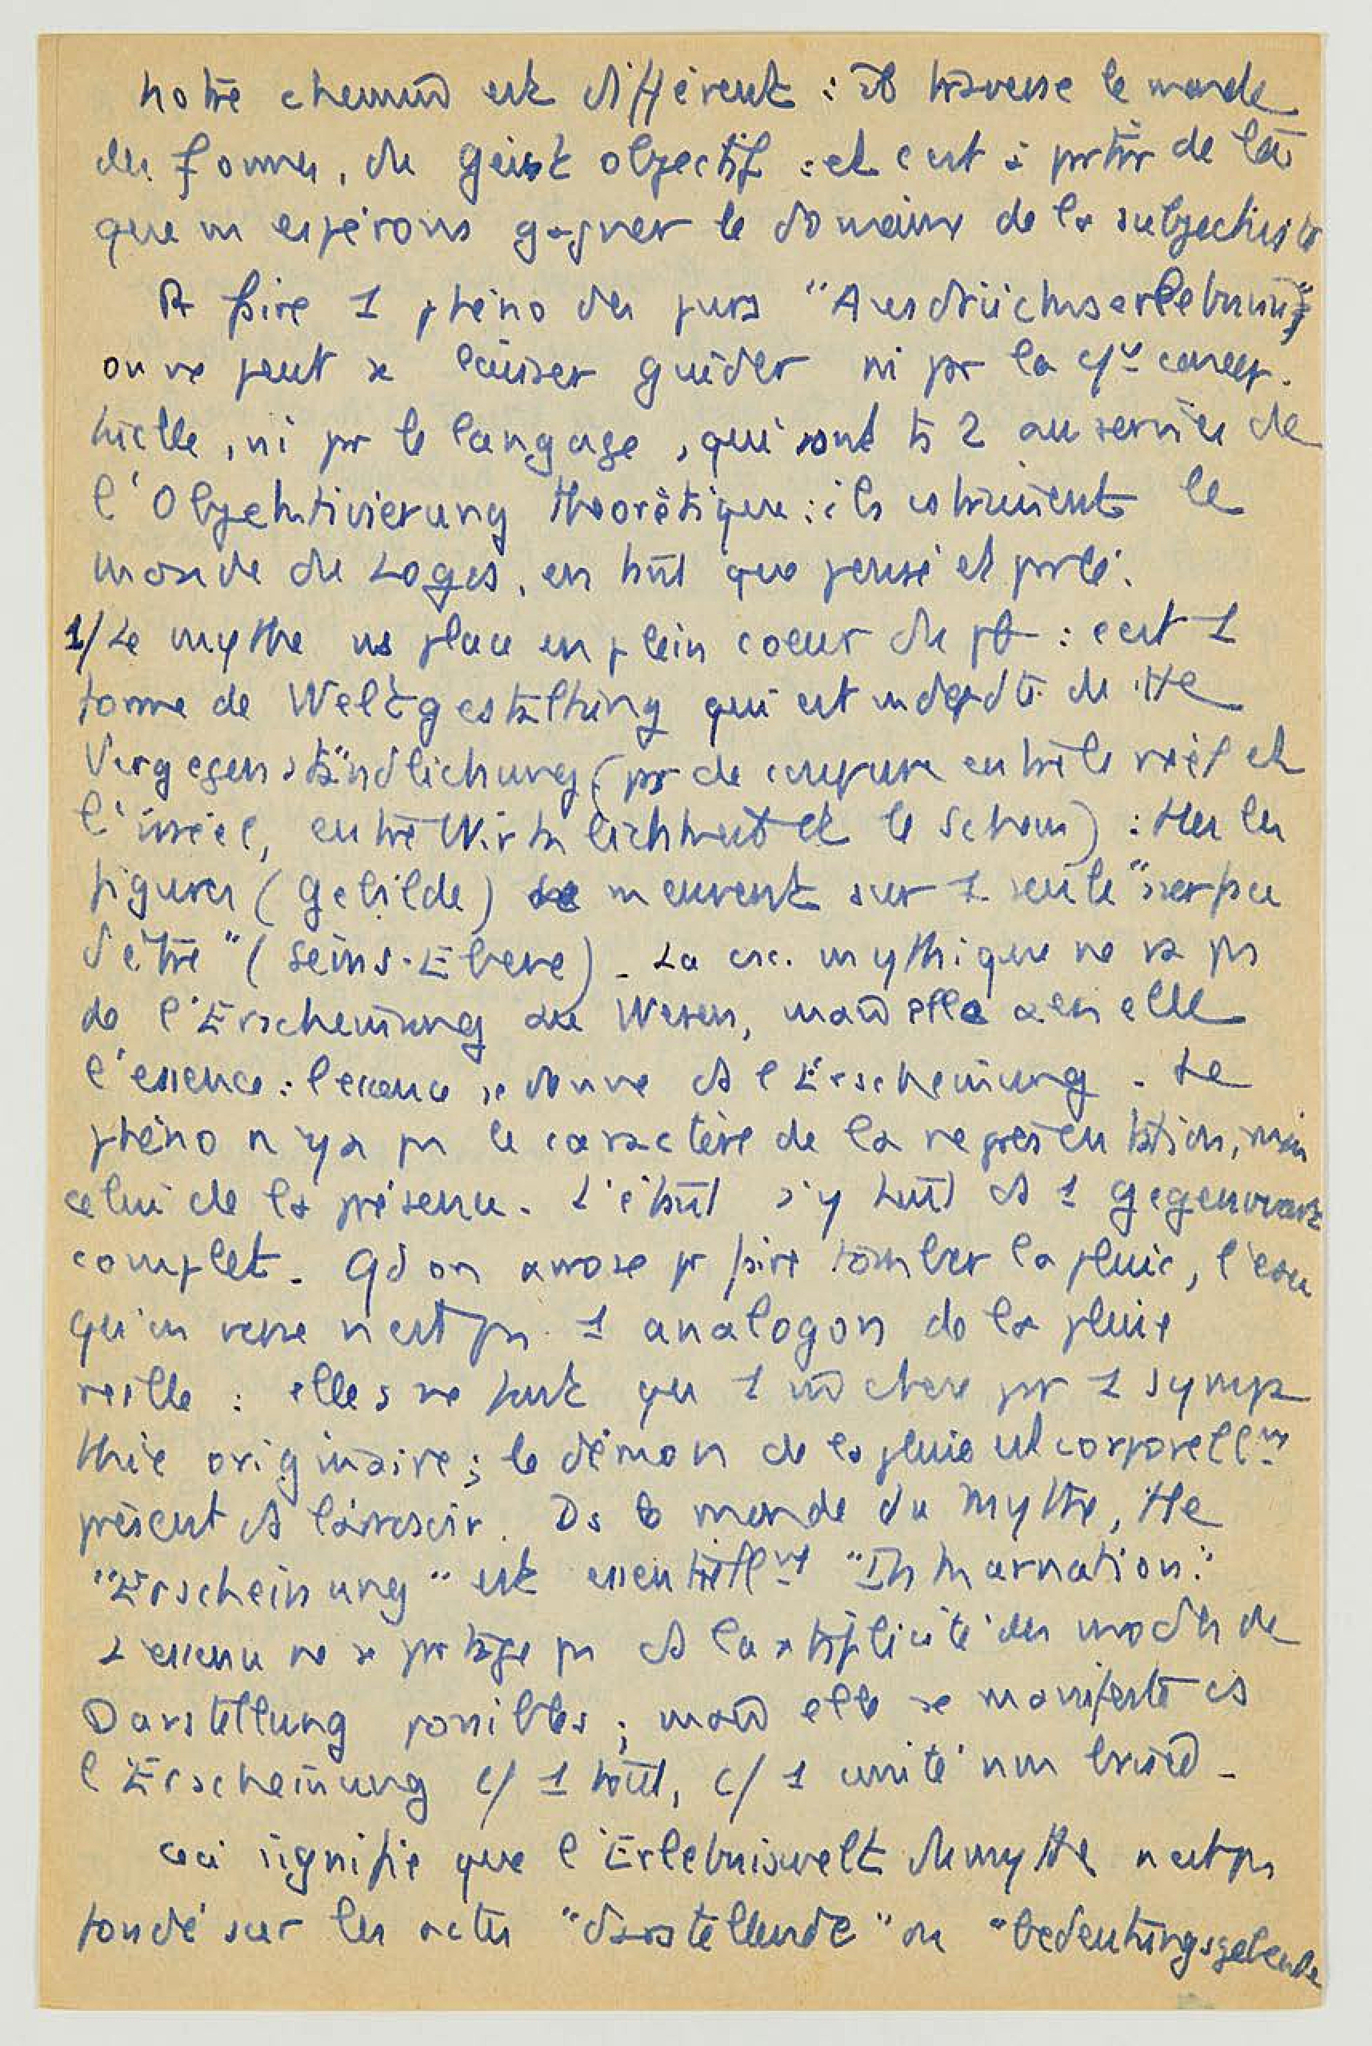 notre chemin est différent : il traverse le monde
des formes, du geist objectif : et c'est à partir de là
que ns espérons gagner le domaine de la subjectivité
Pr faire 1 phéno des purs "Ausdrückserlebnisse"
on ne peut se laisser guider ni par la cce concep-
tuelle, ni par le langage, qui sont ts 2 au service de
l'Objektivierung théorétique : ils construisent le
monde du Logos, en tant que pensé et parlé.
1/ Le mythe ns place en plein coeur du pb : c'est 1
forme de Weltgestaltung qui est indepdte de tte
Vergegenständlichung (pas de coupure entre le réel et
l'irréel, entre Wirklichkeit et le Schein) : ttes les
figures (Gebilde) se meuvent sur 1 seule "surface
d'être" (Seins-Ebene). La csc. mythique ne va pas
de l'Erscheinung au Wesen, mais elle a en elle
l'essence : l'essence se donne ds l'Erscheinung. Le
phéno n'y a pas le caractère de la représentation, mais
celui de la présence. L'être s'y tient ds 1 Gegenwart
complet. Qd on arrose pr faire tomber la pluie, l'eau
qu'on verse n'est pas 1 analogon de la pluie
réelle : elles ne font qu 1 attachées par 1 sympa
thie originaire ; le démon de la pluie est corporellmt
présent ds l'arrosoir. Ds le monde du Mythe, tte
"Erscheinung" est essentiellmt "Inkarnation."
L'essence ne se partage pas ds la multiplicité des modes de
Darstellung possibles ; mais elle se manifeste ds
l'Erscheinung c/ 1 tout, c/ 1 unité non brisée -
ceci signifie que l'Erlebniswelt du mythe n'est pas
fondé sur les actes "darstellende" ou "bedeutungsgebende